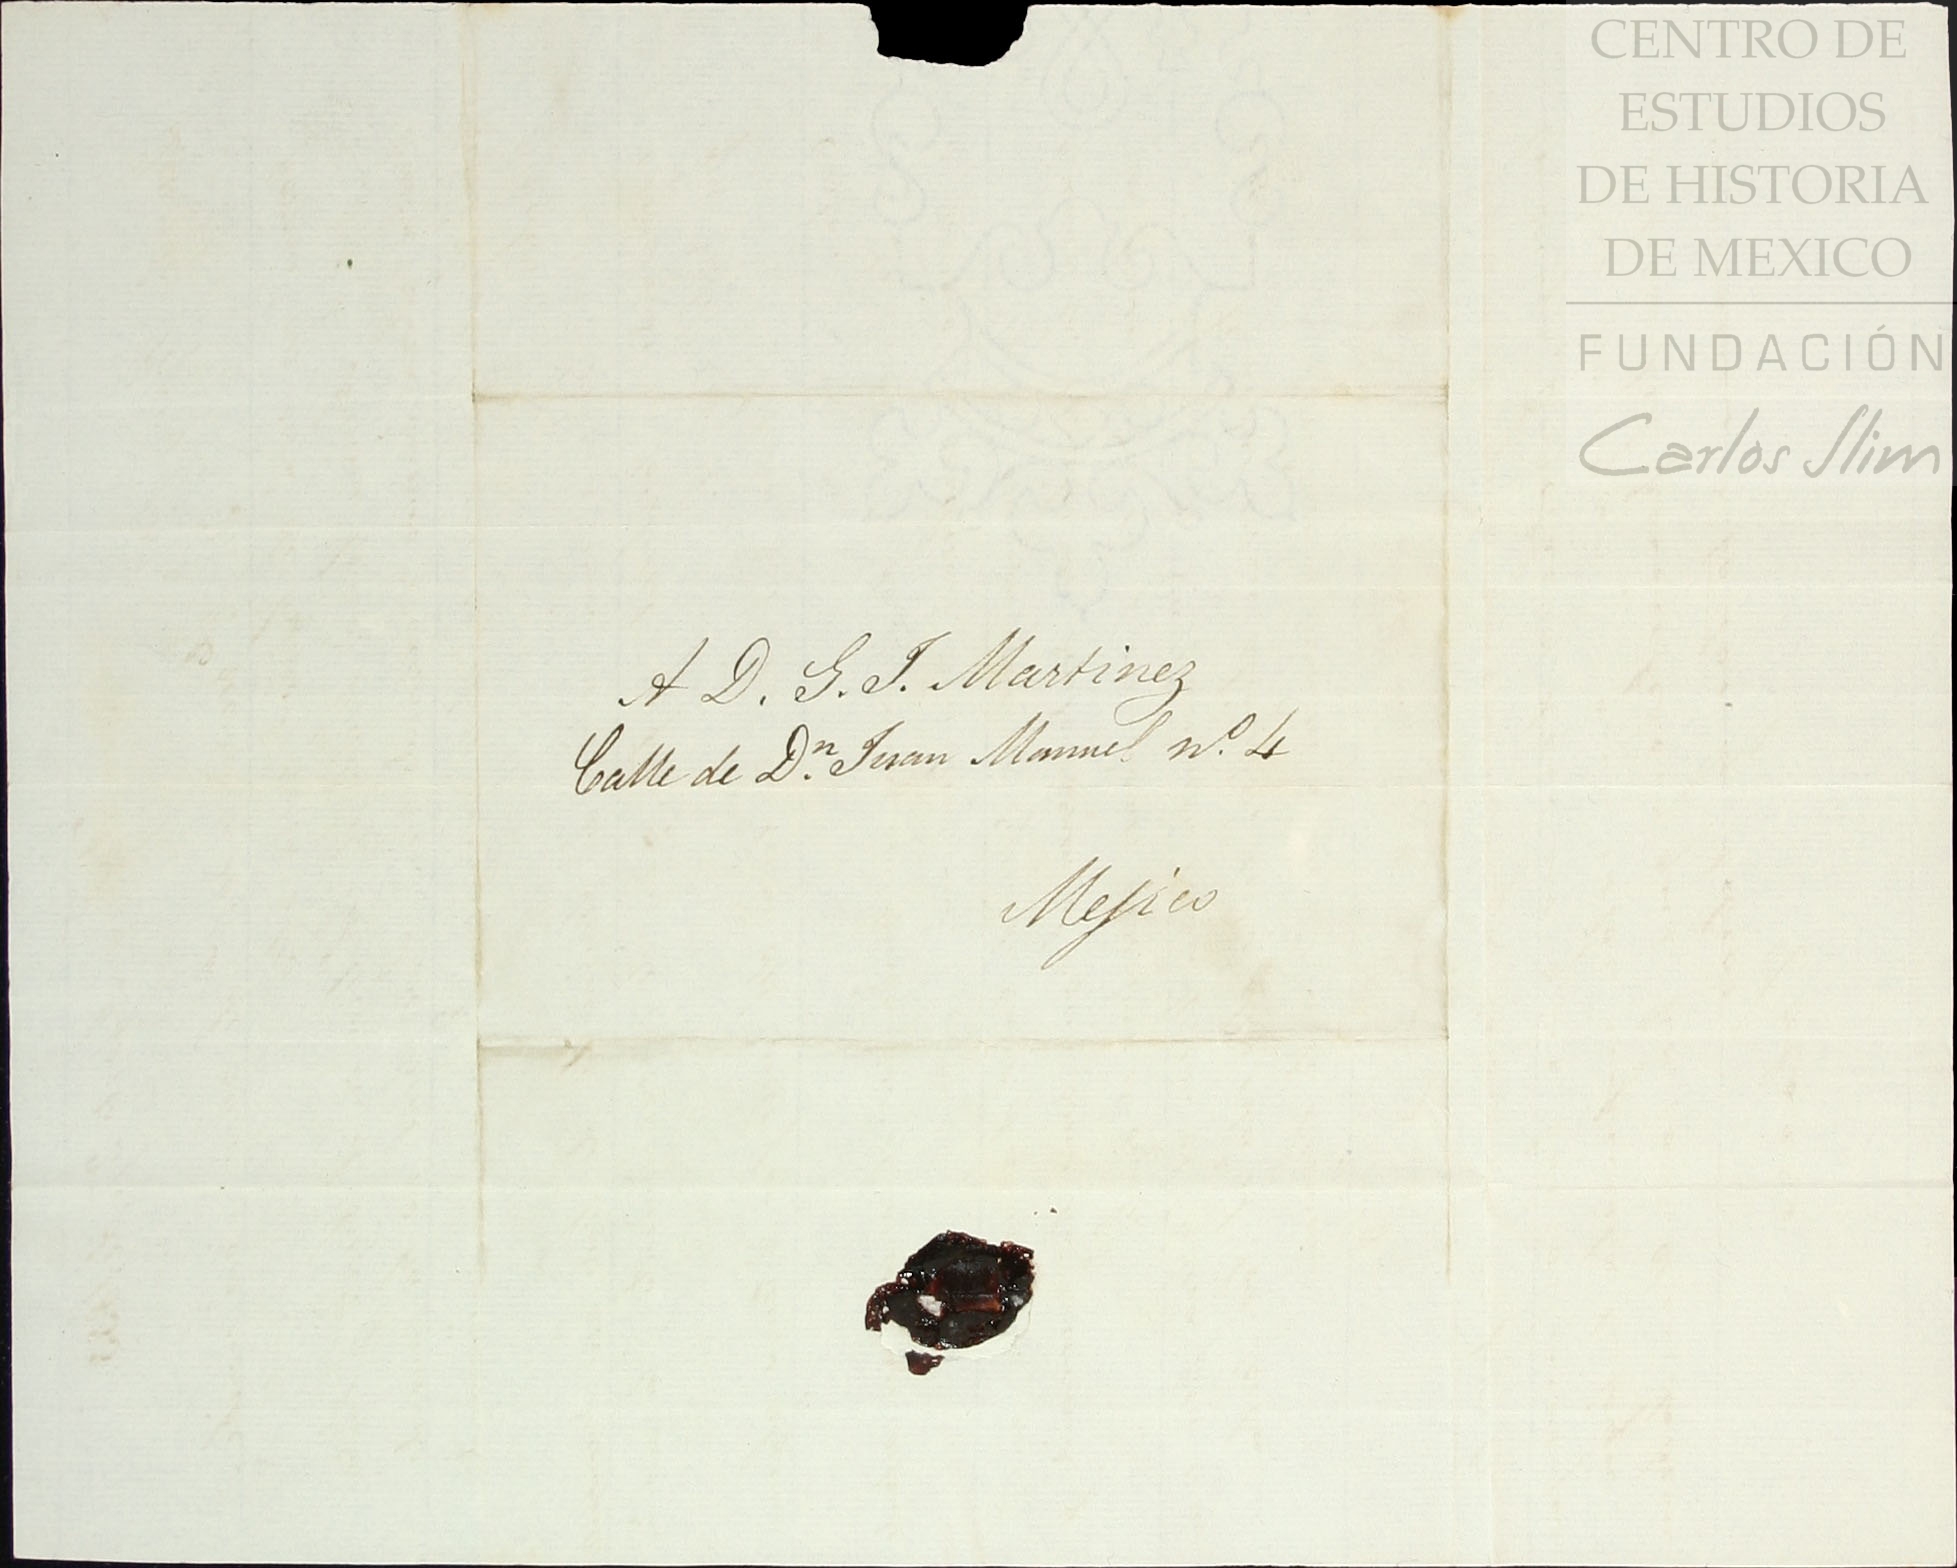 CENTRO DE
ESTUDIOS
DE HISTORIA
DE MEXICO
FUNDACIÓN
Carlos Slim
A D. G. J. Martinez
Calle de Dn. Juan Manuel no. 4
Mejico